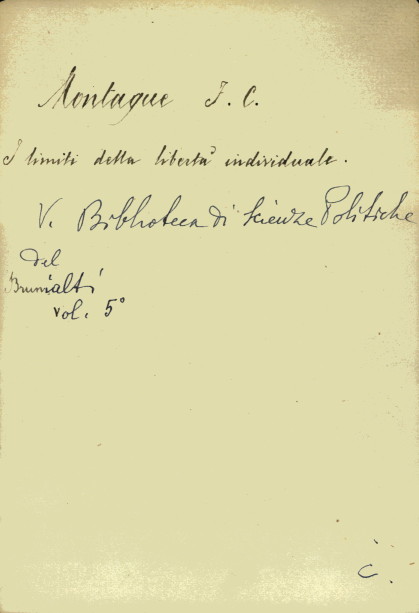 Montague F. C.
I limiti della libertà individuale.
V. Biblioteca di Scienze Politiche
del
Brunialti
vol. 5°
C.